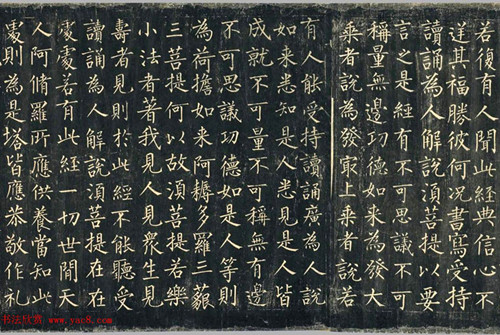 若復有人聞此經典信心不
逆其福勝彼何況書寫受持
讀誦為人解說須菩提以要
言之是經有不可思議不可
稱量無邊功德如來為發大
乘者說為發冣上乘者說若
有人能受持讀誦廣為人說
如来悉知是人悉見是人皆
成就不可量不可稱無有邊
不可思議功德如是人等則
為荷擔如来阿耨多羅三藐
三菩提何以故須菩提若樂
小法者著我見人見眾生見
壽者見則於此經不能聽受
讀誦為人解說須菩提在在
處處若有此經一切世間天
人阿脩羅所應供養當知此
處則為是塔皆應恭敬作礼
书法欣赏 www.yac8.com